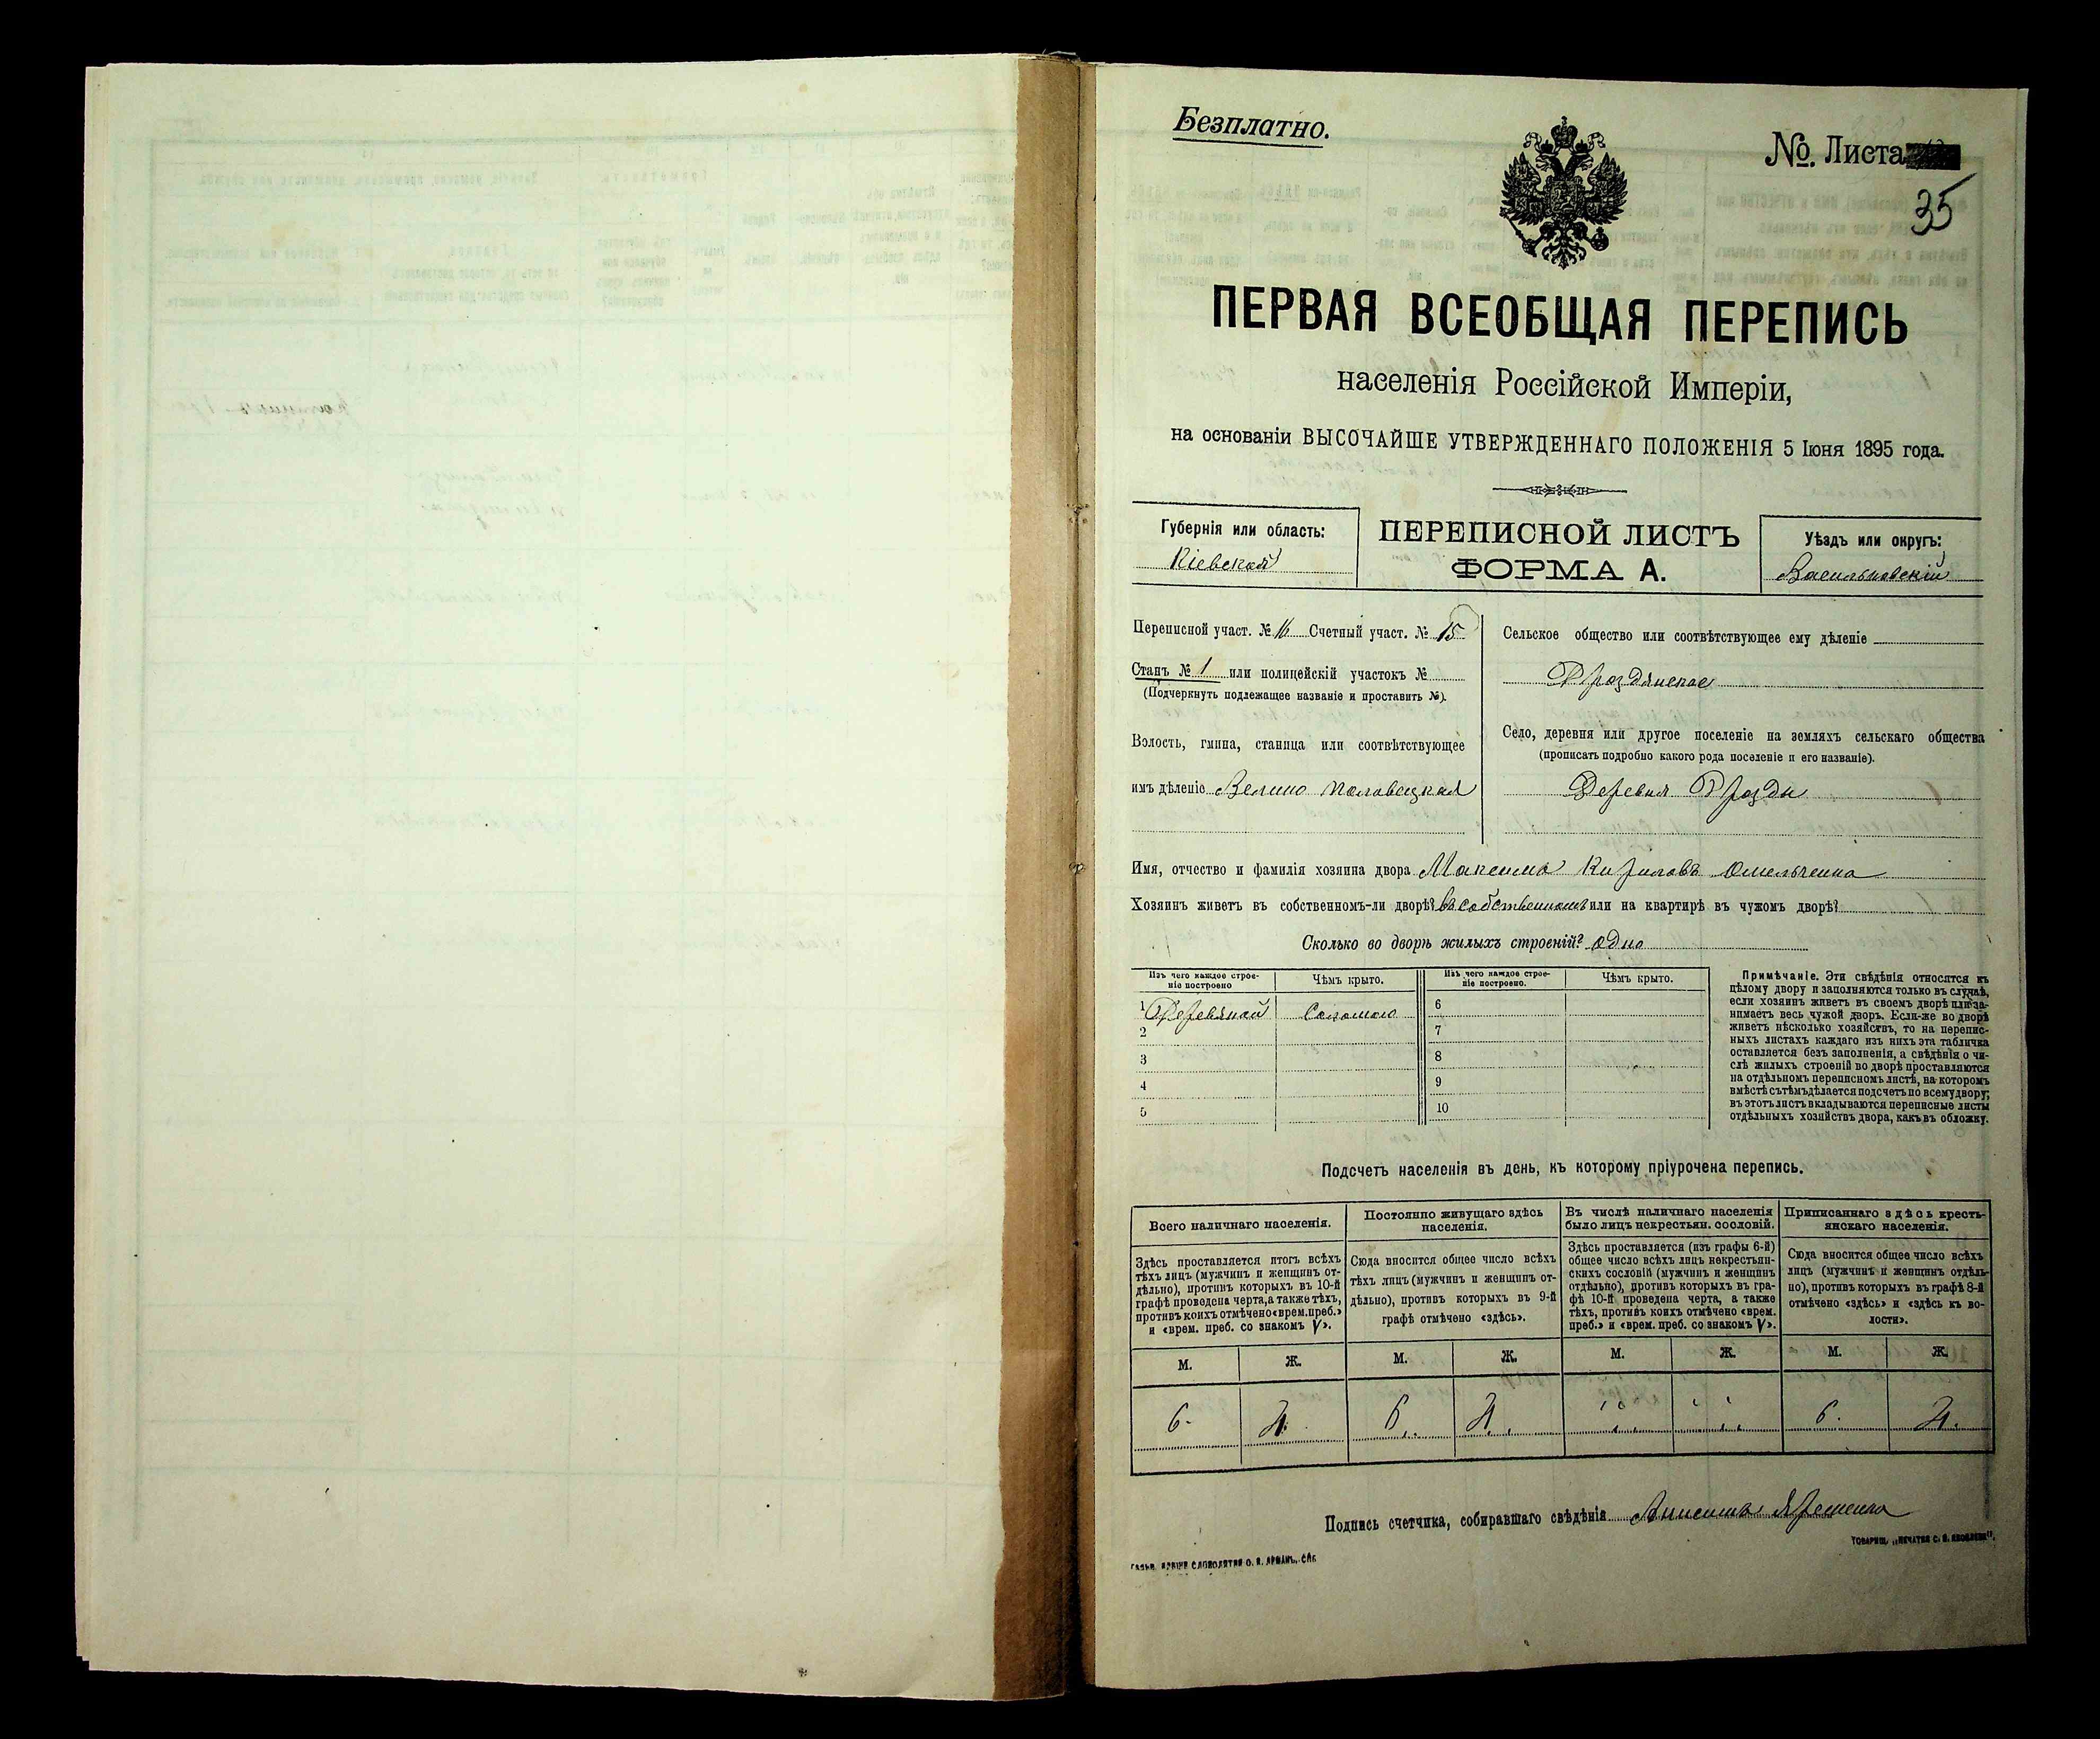 Безплатно.
№. Листа
35
ПЕРВАЯ ВСЕОБЩАЯ ПЕРЕПИСЬ
населенія Россійской Имперіи,
на основаніи ВЫСОЧАЙШЕ УТВЕРЖДЕННАГО ПОЛОЖЕНІЯ 5 Іюня 1895 года.
Губернія или область:
Кіевская
ПЕРЕПИСНОЙ ЛИСТЪ
ФОРМА А.
Уѣздъ или округъ:
Васильковскій
Переписной участ. № 16 Счетный участ. № 15
Станъ № 1 или полицейскій участокъ №
(Подчеркнуть подлежащее названіе и проставить №).
Волость, гмина, станица или соотвѣтствующее
имъ дѣленіе Велико Половецкая
Сельское общество или соотвѣтствующее ему дѣленіе
Дроздянское
Село, деревня или другое поселеніе на земляхъ сельскаго общества
(прописать подробно какого рода поселеніе и его названіе).
Деревня Дрозды
Имя, отчество и фамилія хозяина двора Максимъ Кириловъ Омельченко
Хозяинъ живетъ въ собственномъ-ли дворѣ? въ собственномъ или на квартирѣ въ чужомъ дворѣ?
Сколько во дворѣ жилыхъ строеній? одно
Изъ чего каждое строе-
ніе построено
Чѣмъ крыто.
Изъ чего каждое строе-
ніе построено.
Чѣмъ крыто.
1 Деревяной Соломою
2
3
4
5
6
7
8
9
10
Примѣчаніе. Эти свѣдѣнія относятся къ
цѣлому двору и заполняются только въ случаѣ,
если хозяинъ живетъ въ своемъ дворѣ или за-
нимаетъ весь чужой дворъ. Если-же во дворѣ
живетъ нѣсколько хозяйствъ, то на перепис-
ныхъ листахъ каждаго изъ нихъ эта табличка
оставляется безъ заполненія, а свѣдѣнія о чи-
слѣ жилыхъ строеній во дворѣ проставляются
на отдѣльномъ переписномъ листѣ, на которомъ
вмѣстѣ съ тѣмъ дѣлается подсчетъ по всему двору;
въ этотъ листъ вкладываются переписные листы
отдѣльныхъ хозяйствъ двора, какъ въ обложку.
Подсчетъ населенія въ день, къ которому пріурочена перепись.
Всего наличнаго населенія.
Здѣсь проставляется итогъ всѣхъ
тѣхъ лицъ (мужчинъ и женщинъ от-
дѣльно), противъ которыхъ въ 10-й
графѣ проведена черта, а также тѣхъ,
противъ коихъ отмѣчено «врем. преб.»
и «врем. преб. со знакомъ V».
Постоянно живущаго здѣсь
населенія.
Сюда вносится общее число всѣхъ
тѣхъ лицъ (мужчинъ и женщинъ от-
дѣльно), противъ которыхъ въ 9-й
графѣ отмѣчено «здѣсь».
Въ числѣ наличнаго населенія
было лицъ некрестьян. сословій.
Здѣсь проставляется (изъ графы 6-й)
общее число всѣхъ лицъ некрестьян-
скихъ сословій (мужчинъ и женщинъ
отдѣльно), противъ которыхъ въ гра-
фѣ 10-й проведена черта, а также
тѣхъ, противъ коихъ отмѣчено «врем.
преб.» и «врем. преб. со знакомъ V».
Приписаннаго здѣсь кресть-
янскаго населенія.
Сюда вносится общее число всѣхъ
лицъ (мужчинъ и женщинъ отдѣль-
но), противъ которыхъ въ графѣ 8-й
отмѣчено «здѣсь» и «здѣсь къ во-
лости».
М. Ж. М. Ж. М. Ж. М. Ж.
6. 4. 6. 4. 6. 4.
Подпись счетчика, собиравшаго свѣдѣнія